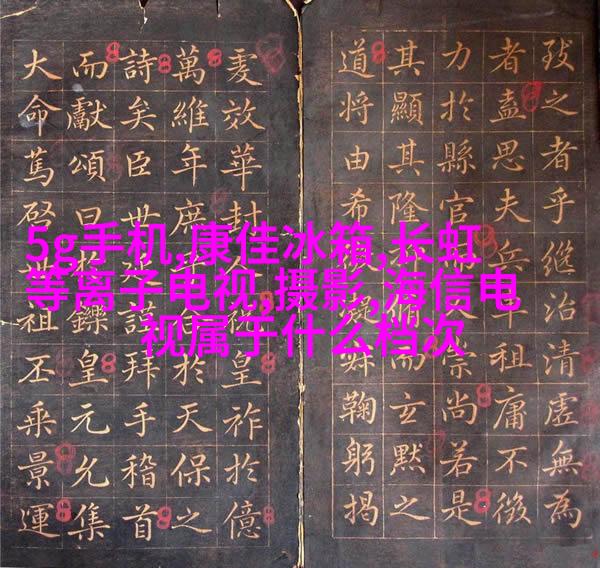 5g手机,康佳冰箱,长虹
等离子电视,摄影,海信电
视属于什么档次
之者乎治清虛無為
者盍思夫兵革租庸不徵
力於縣官崇尚若是
其顯其隆脩而玄默之
道將由希鞠躬揭
效華封人祝皇祚於億
萬維年庶於天保之
詩矣臣謹拜手稽首
而獻頌曰鑠皇元允集
大命篤啓祖丕乘景運